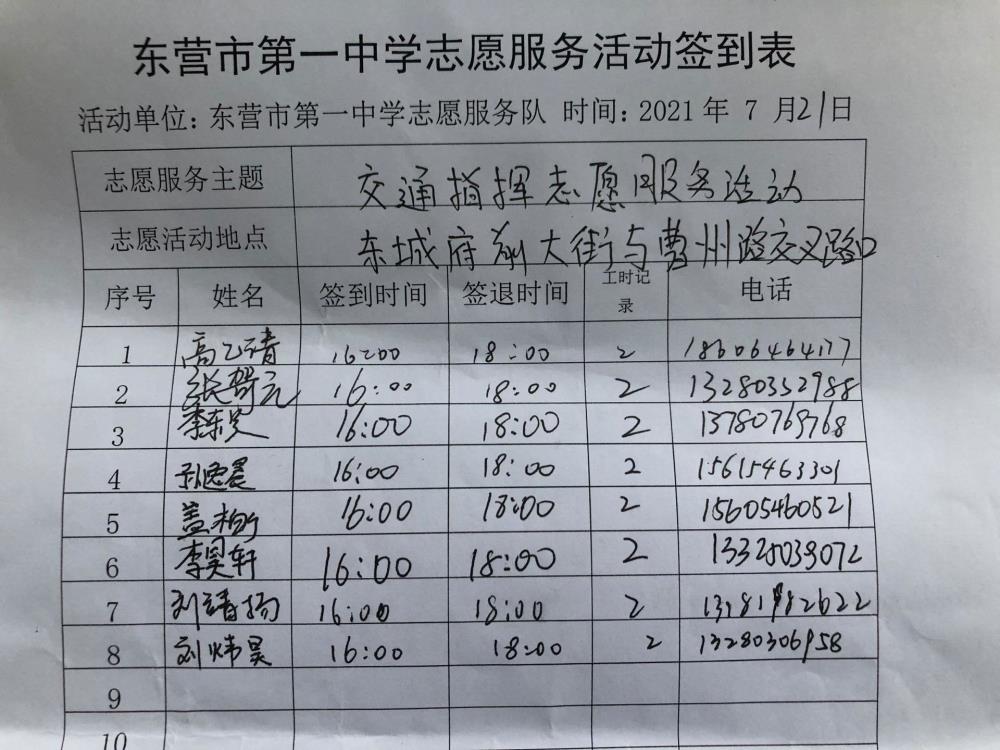 东营市第一中学志愿服务活动签到表
活动单位：东营市第一中学志愿服务队 时间：2021 年 7 月21日
志愿服务主题 交通指挥志愿服务活动
志愿活动地点 东城府前大街与曹州路交叉路口
序号 姓名 签到时间 签退时间 工时记录 电话
1 高乙靖 16:00 18:00 2 18606464177
2 张贺元 16:00 18:00 2 13280352988
3 李东 16:00 18:00 2 13780769768
4 晨 16:00 18:00 2 15615463301
5 盖 16:00 18:00 2 15605460521
6 李昊轩 16:00 18:00 2
7 刘靖扬 16:00 18:00 2
8 刘炜昊 16:00 18:00 2 13280306958
9
10